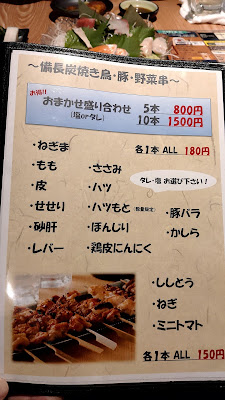 ～備長炭焼き鳥・豚・野菜串～
お得!!
おまかせ盛り合わせ 5本 800円
(塩orタレ) 10本 1500円
・ねぎま 各1本 ALL 180円
・もも ・ささみ
・皮 ・ハツ タレ・塩 お選び下さい！
・せせり ・ハツもと(数量限定) ・豚バラ
・砂肝 ・ぼんじり ・かしら
・レバー ・鶏皮にんにく
・ししとう
・ねぎ
・ミニトマト
各1本 ALL 150円